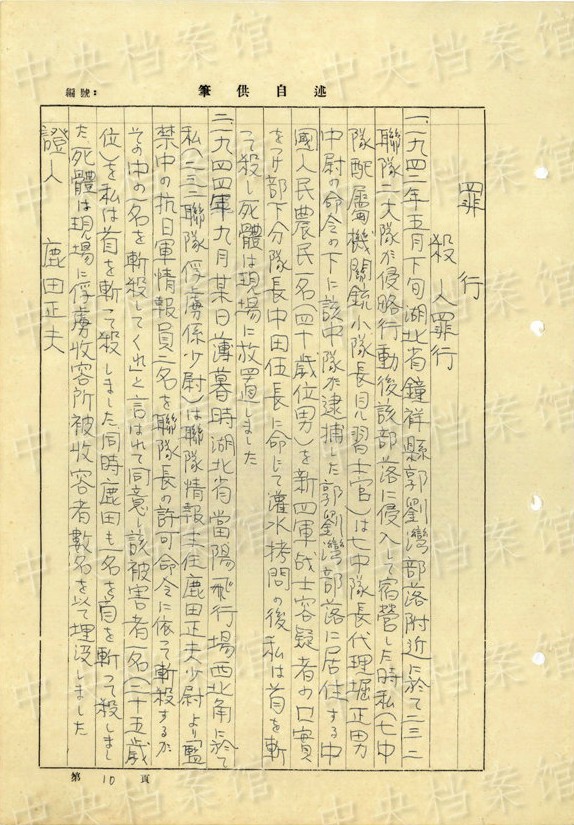 編號：
筆供自述
罪行
殺人罪行
一、一九四二年五月下旬湖北省鐘祥縣郭劉灣部落附近に於て二三二
聯隊二大隊が侵略行動後該部落に侵入して宿営した時私(七中
隊配屬機関銃小隊長見習士官)は七中隊長代理堀正男
中尉の命令の下に該中隊が逮捕した郭劉灣部落に居住する中
國人民農民一名(四十歳位男)を新四軍战士容疑者の口實
をつけ部下分隊長中田伍長に命じて灌水拷問の後私は首を斬
って殺し死體は現場に放置しました
二、一九四四年九月某日薄暮時湖北省當陽飛行場西北角に於て
私(二三二聯隊俘虜係少尉)は聯隊情報主任鹿田正夫少尉より「監
禁中の抗日軍情報員二名を聯隊長の許可命令に依って斬殺するが
その中の一名を斬殺してくれ」と言はれて同意し該被害者一名(二十五歳
位)を私は首を斬って殺しました同時鹿田も一名を首を斬って殺しまし
た死體は現場に俘虜收容所被收容者數名を以て埋没しました
證人 鹿田正夫
第 10 頁
中央档案馆